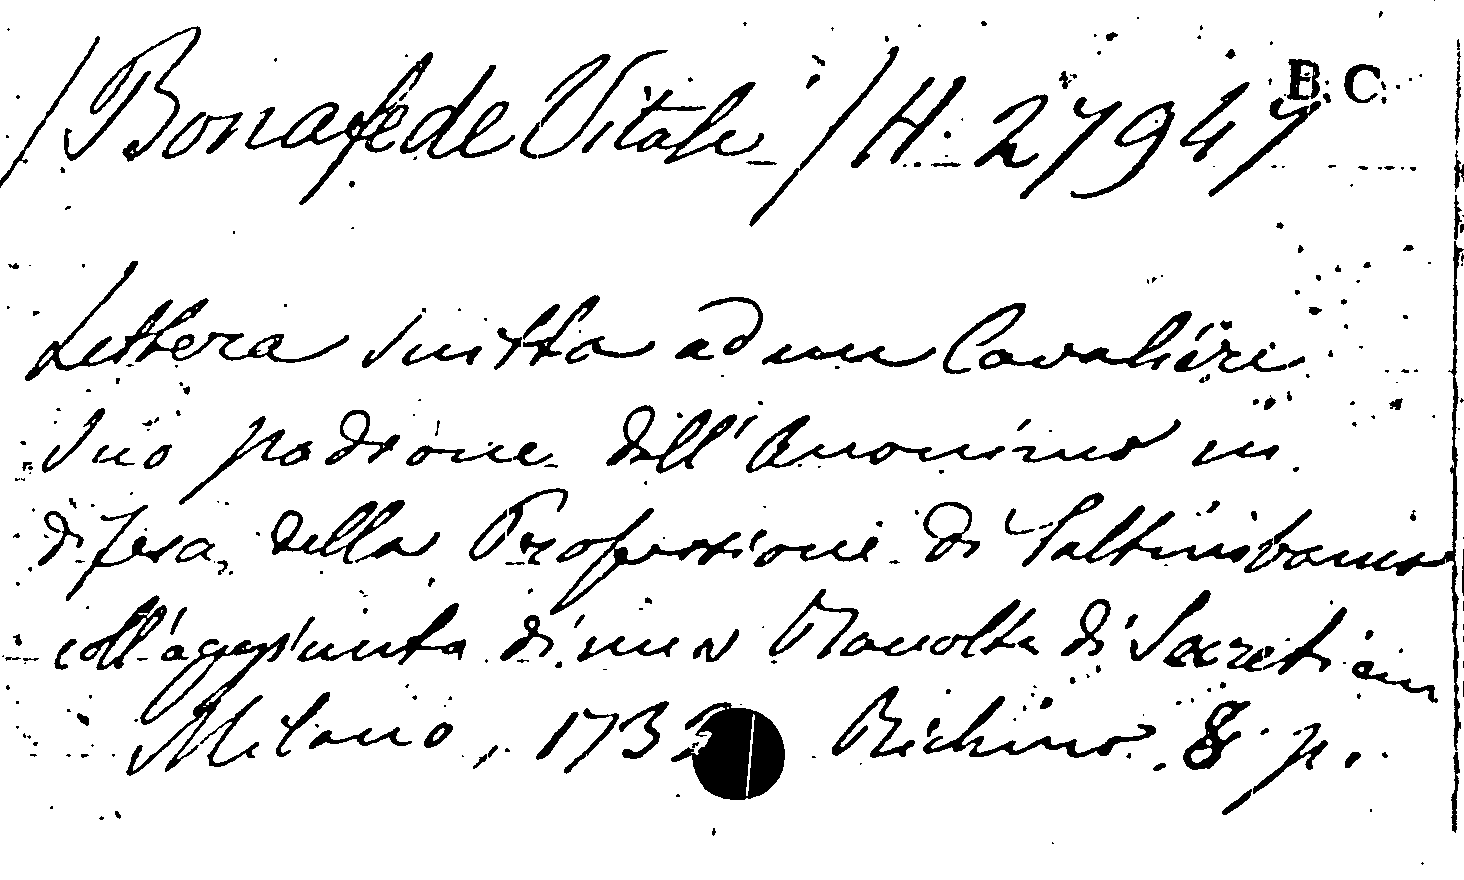 B. C.
/Bonafede Vitale/ H. 27947
Lettera scritta ad un Cavaliere
suo padrone dell'Anonimo in
difesa della Professione di Saltimbanco
coll'aggiunta di una Raccolta di Secreti
Milano, 1732 Richino 8 p.